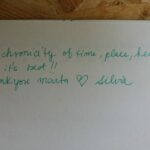 chronicity of time, place, he
it's best!!
nk you marta ♡ Silvia